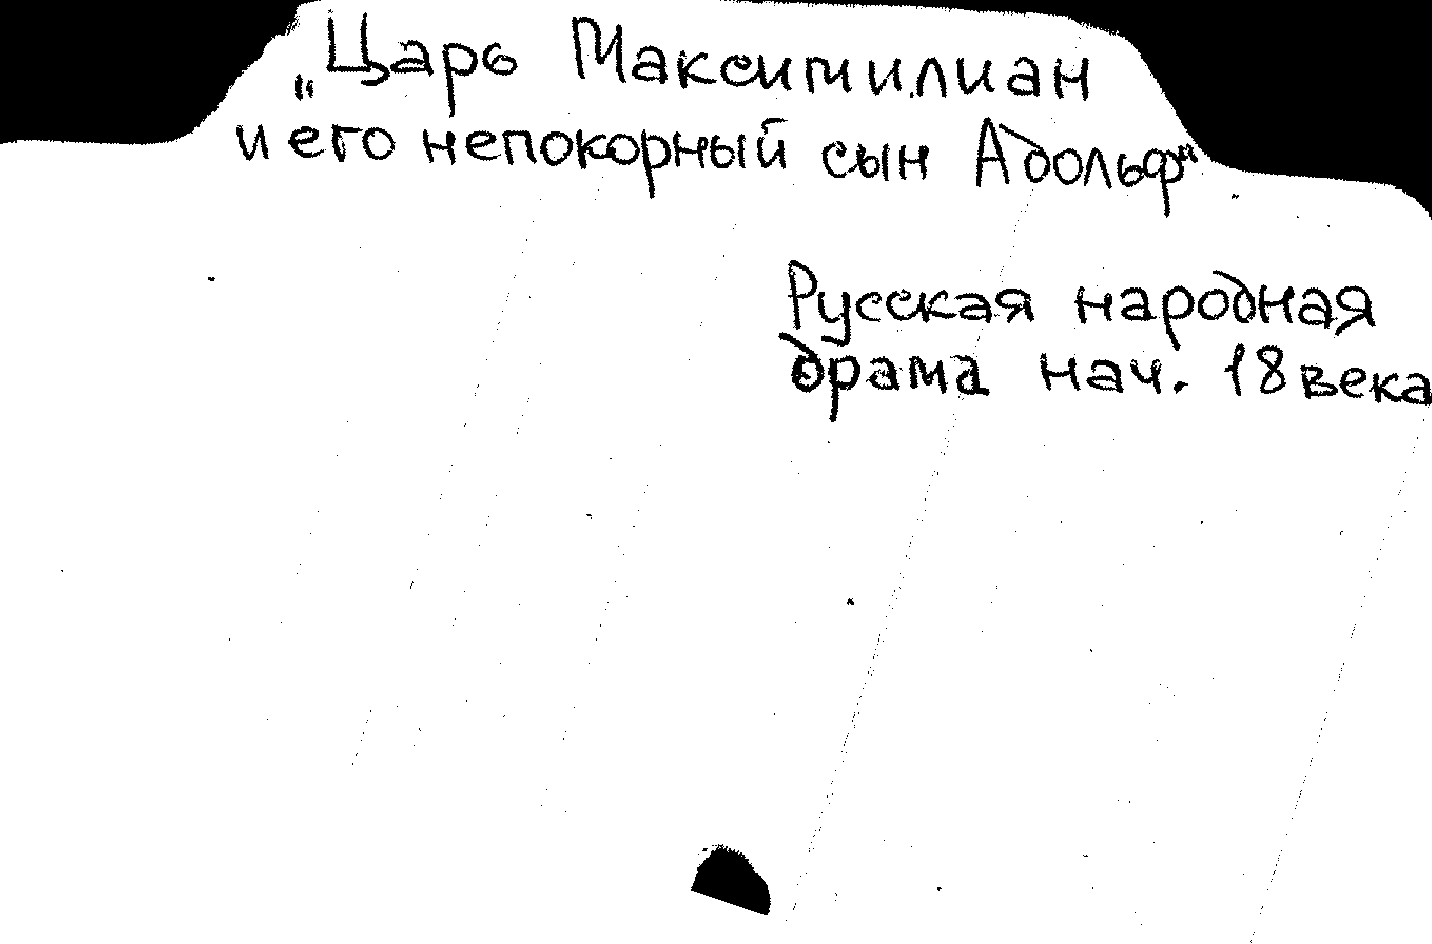 „Царь Максимилиан
и его непокорный сын Адольф“
Русская народная
драма нач. 18 века